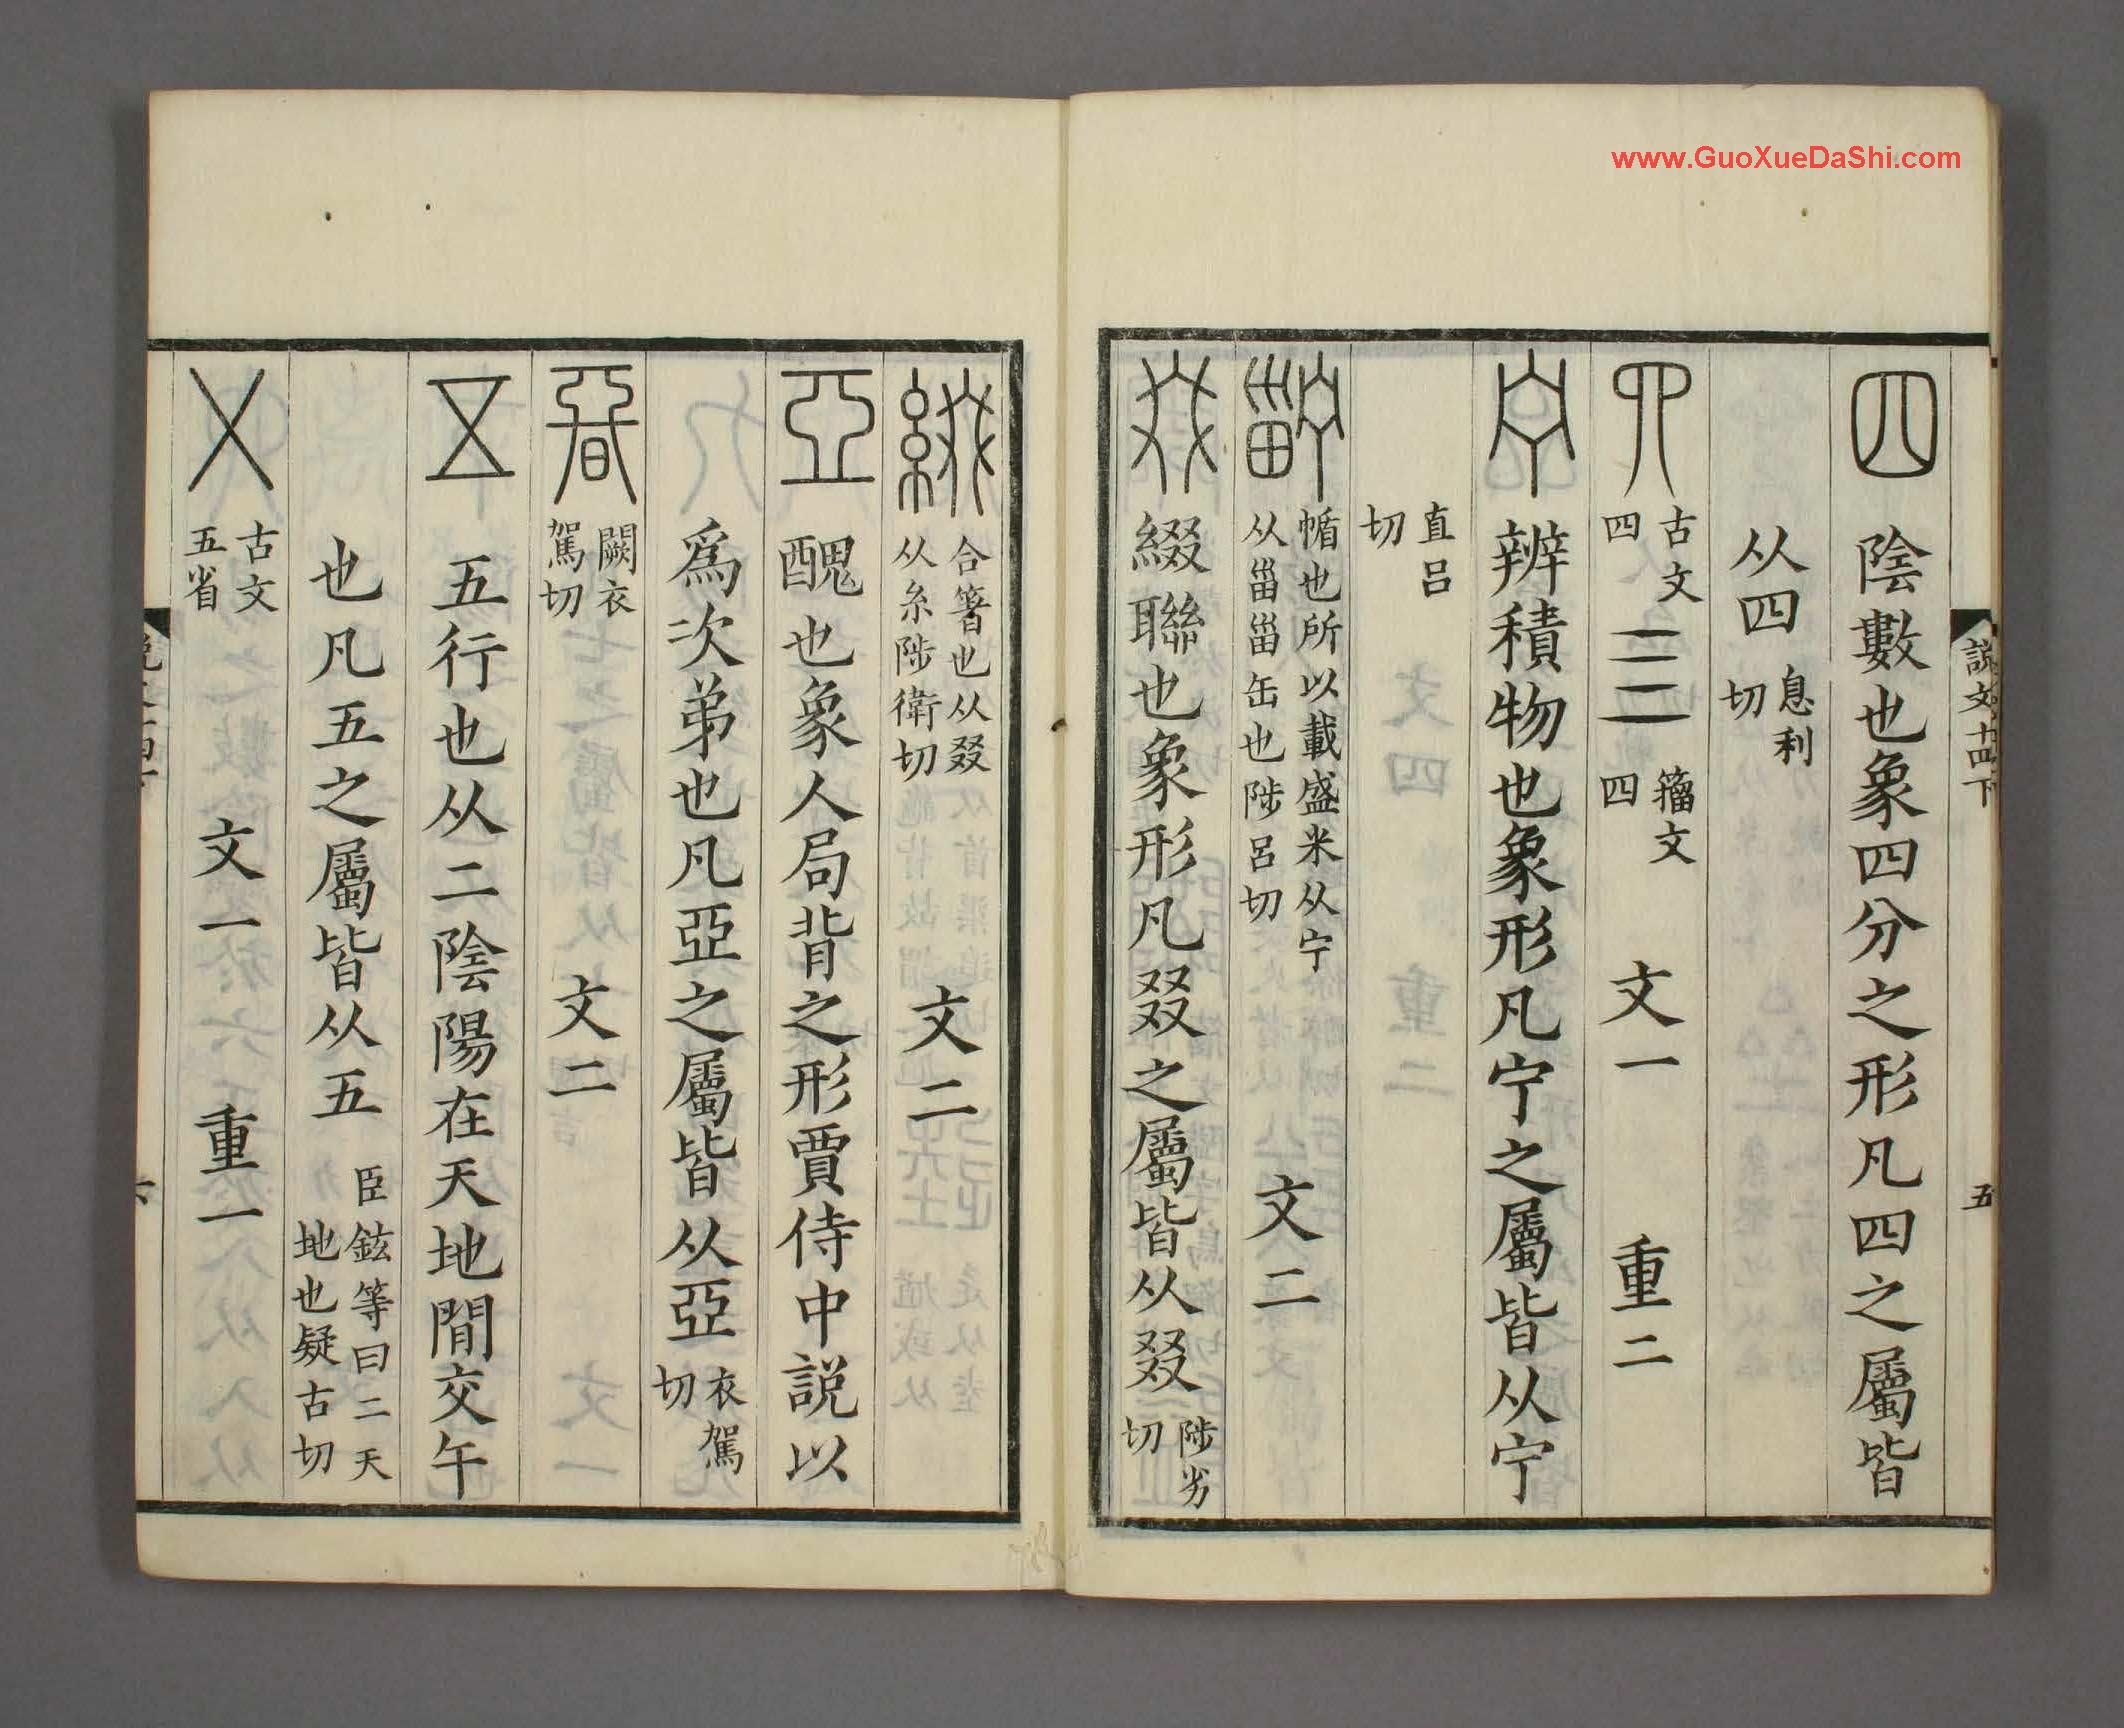 www.GuoXueDaShi.com
説文十四下
五
四 陰數也象四分之形凡四之屬皆
从四 息利切
古文四 亖 籒文四 文一 重二
宁 辨積物也象形凡宁之屬皆从宁
直呂切
㡒也所以載盛米从宁从甾甾缶也陟呂切 文二
叕 綴聯也象形凡叕之屬皆从叕 陟劣切
綴 合箸也从叕从糸陟衛切 文二
亞 醜也象人局背之形賈侍中説以
爲次弟也凡亞之屬皆从亞 衣駕切
闕衣駕切 文二
五 五行也从二陰陽在天地閒交午
也凡五之屬皆从五 臣鉉等曰二天地也疑古切
㐅 古文五省 文一 重一